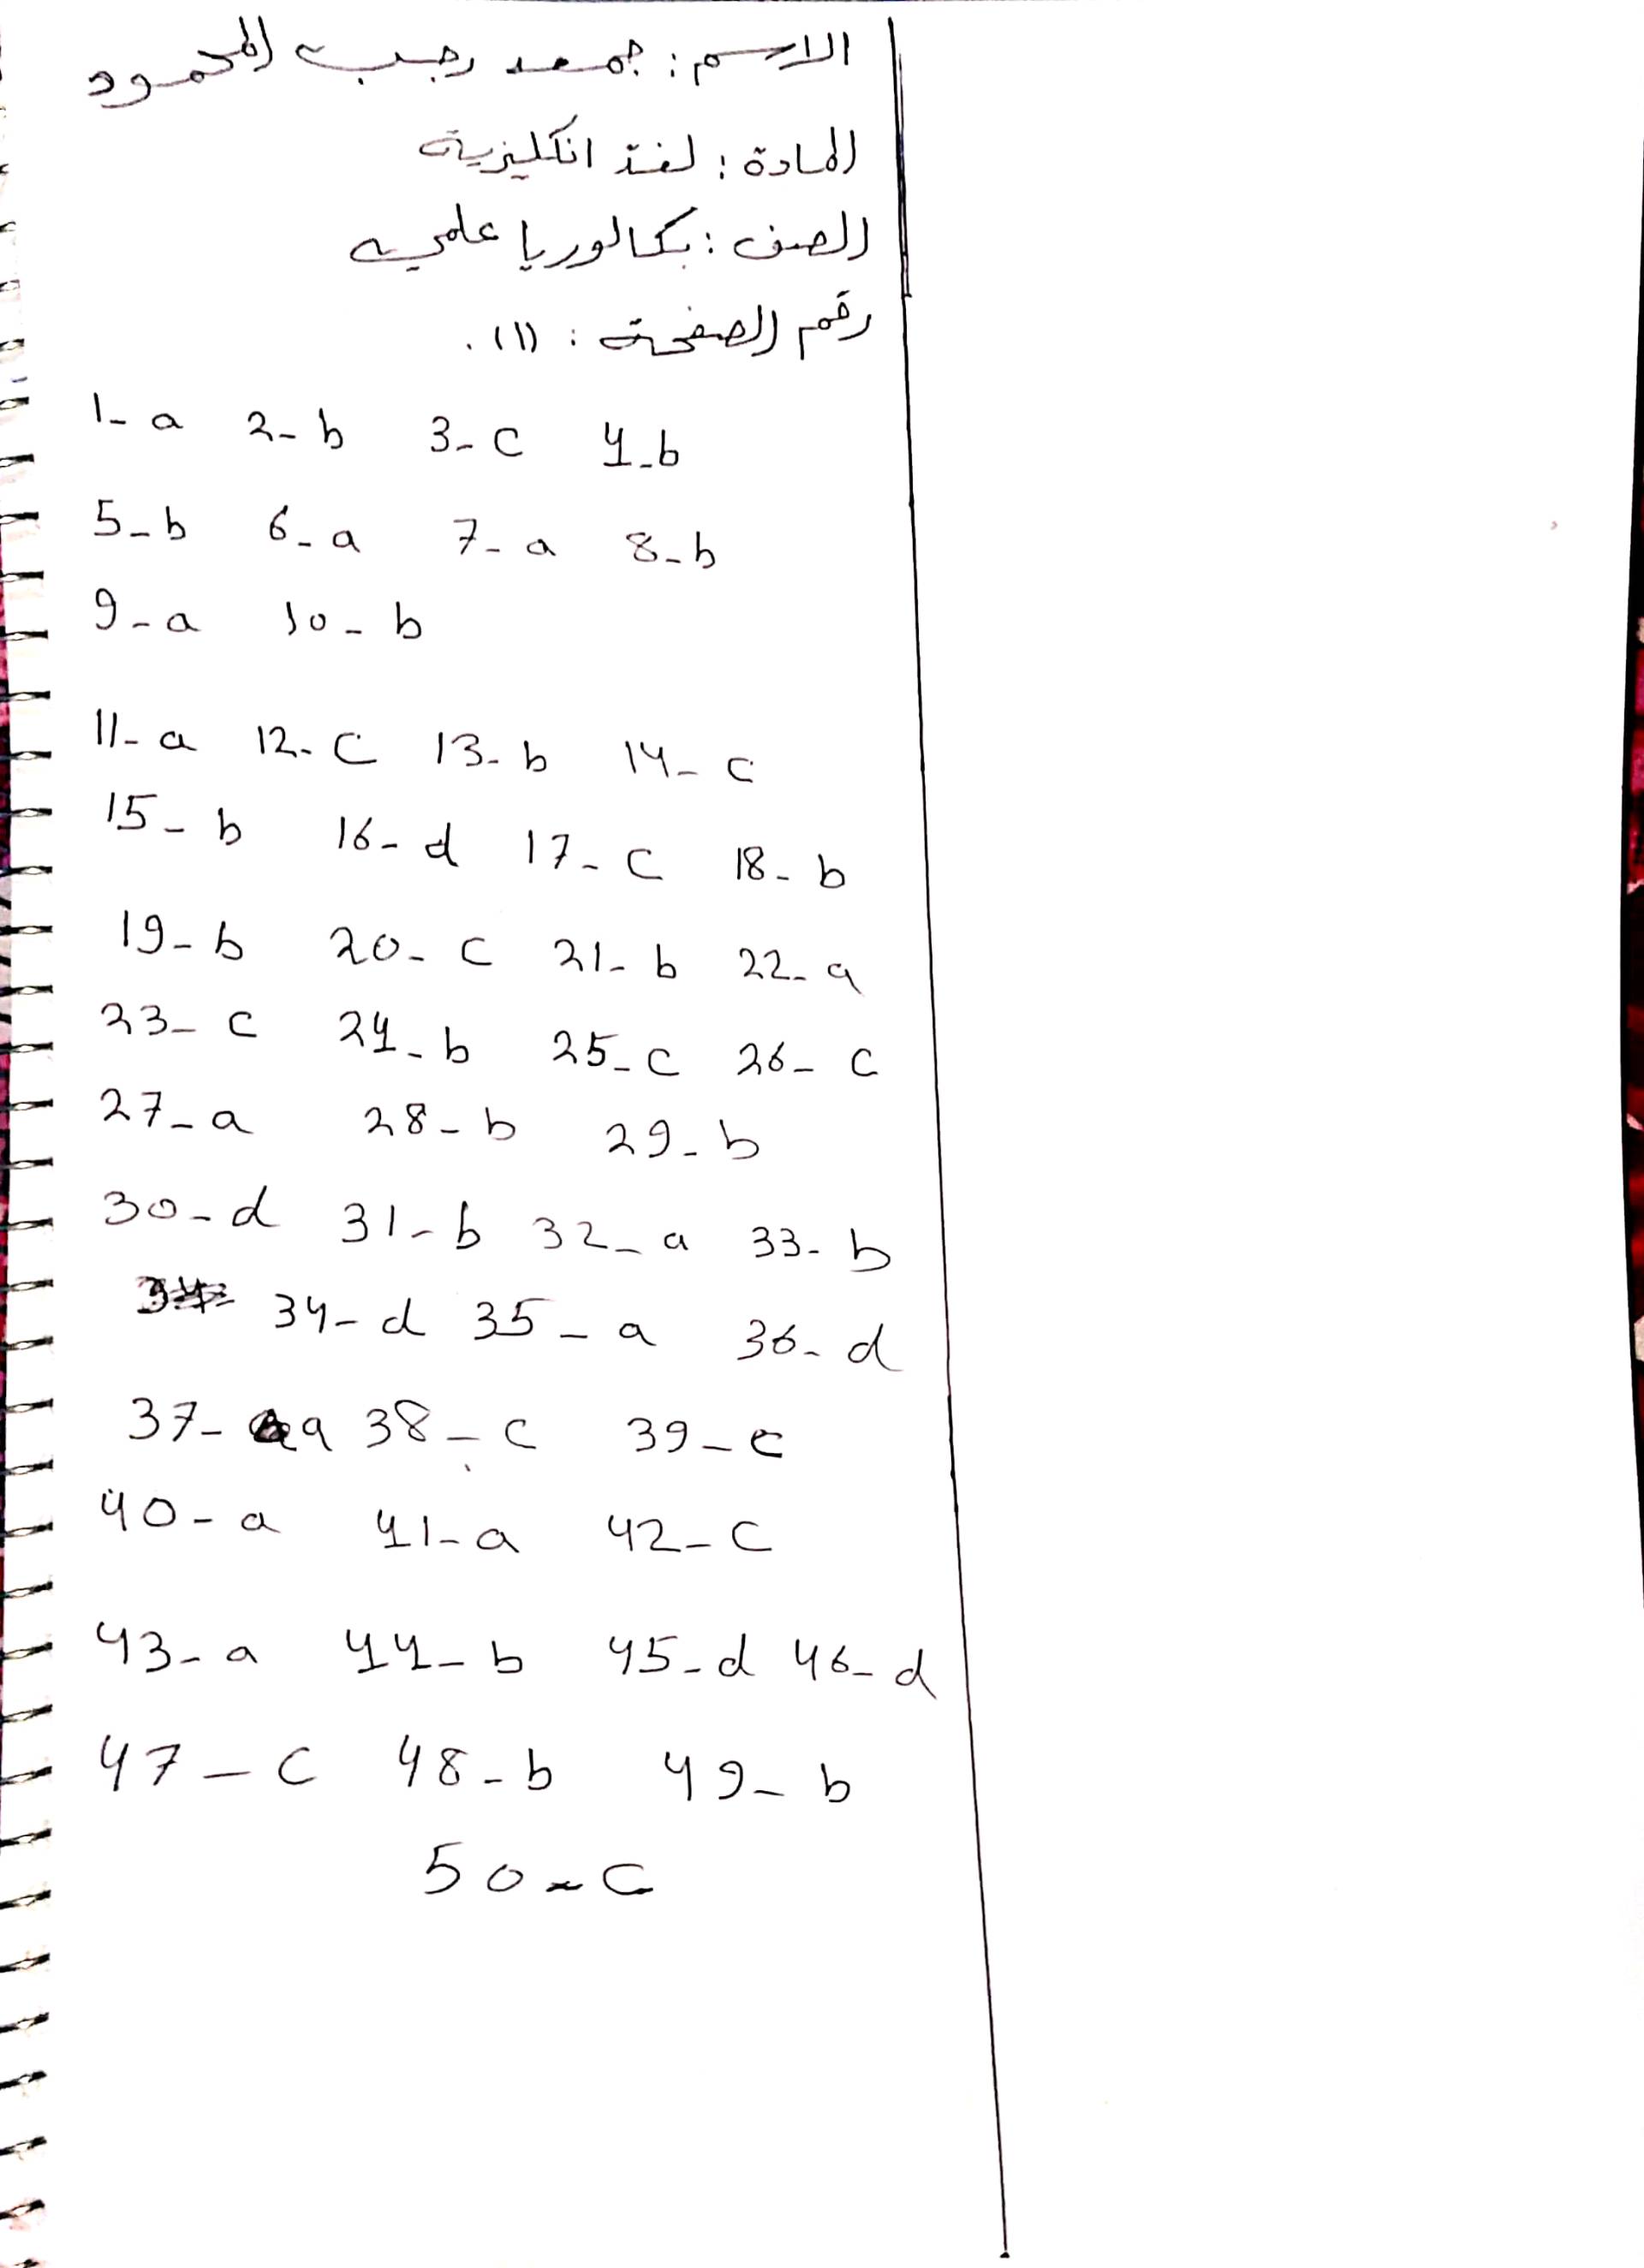 الاسم : جمعه رجب المحمود
المادة : لغة انكليزية
الصف : بكالوريا علميه
رقم الصفحة : (١).
1- a 2- b 3- c 4-b
5-b 6-a 7-a 8-b
9-a 10-b
11-a 12-c 13-b 14-c
15-b 16-d 17-c 18-b
19-b 20-c 21-b 22-a
23-c 24-b 25-c 26-c
27-a 28-b 29-b
30-d 31-b 32-a 33-b
34-d 35-a 36-d
37-a 38-c 39-c
40-a 41-a 42-c
43-a 44-b 45-d 46-d
47-c 48-b 49-b
50-c